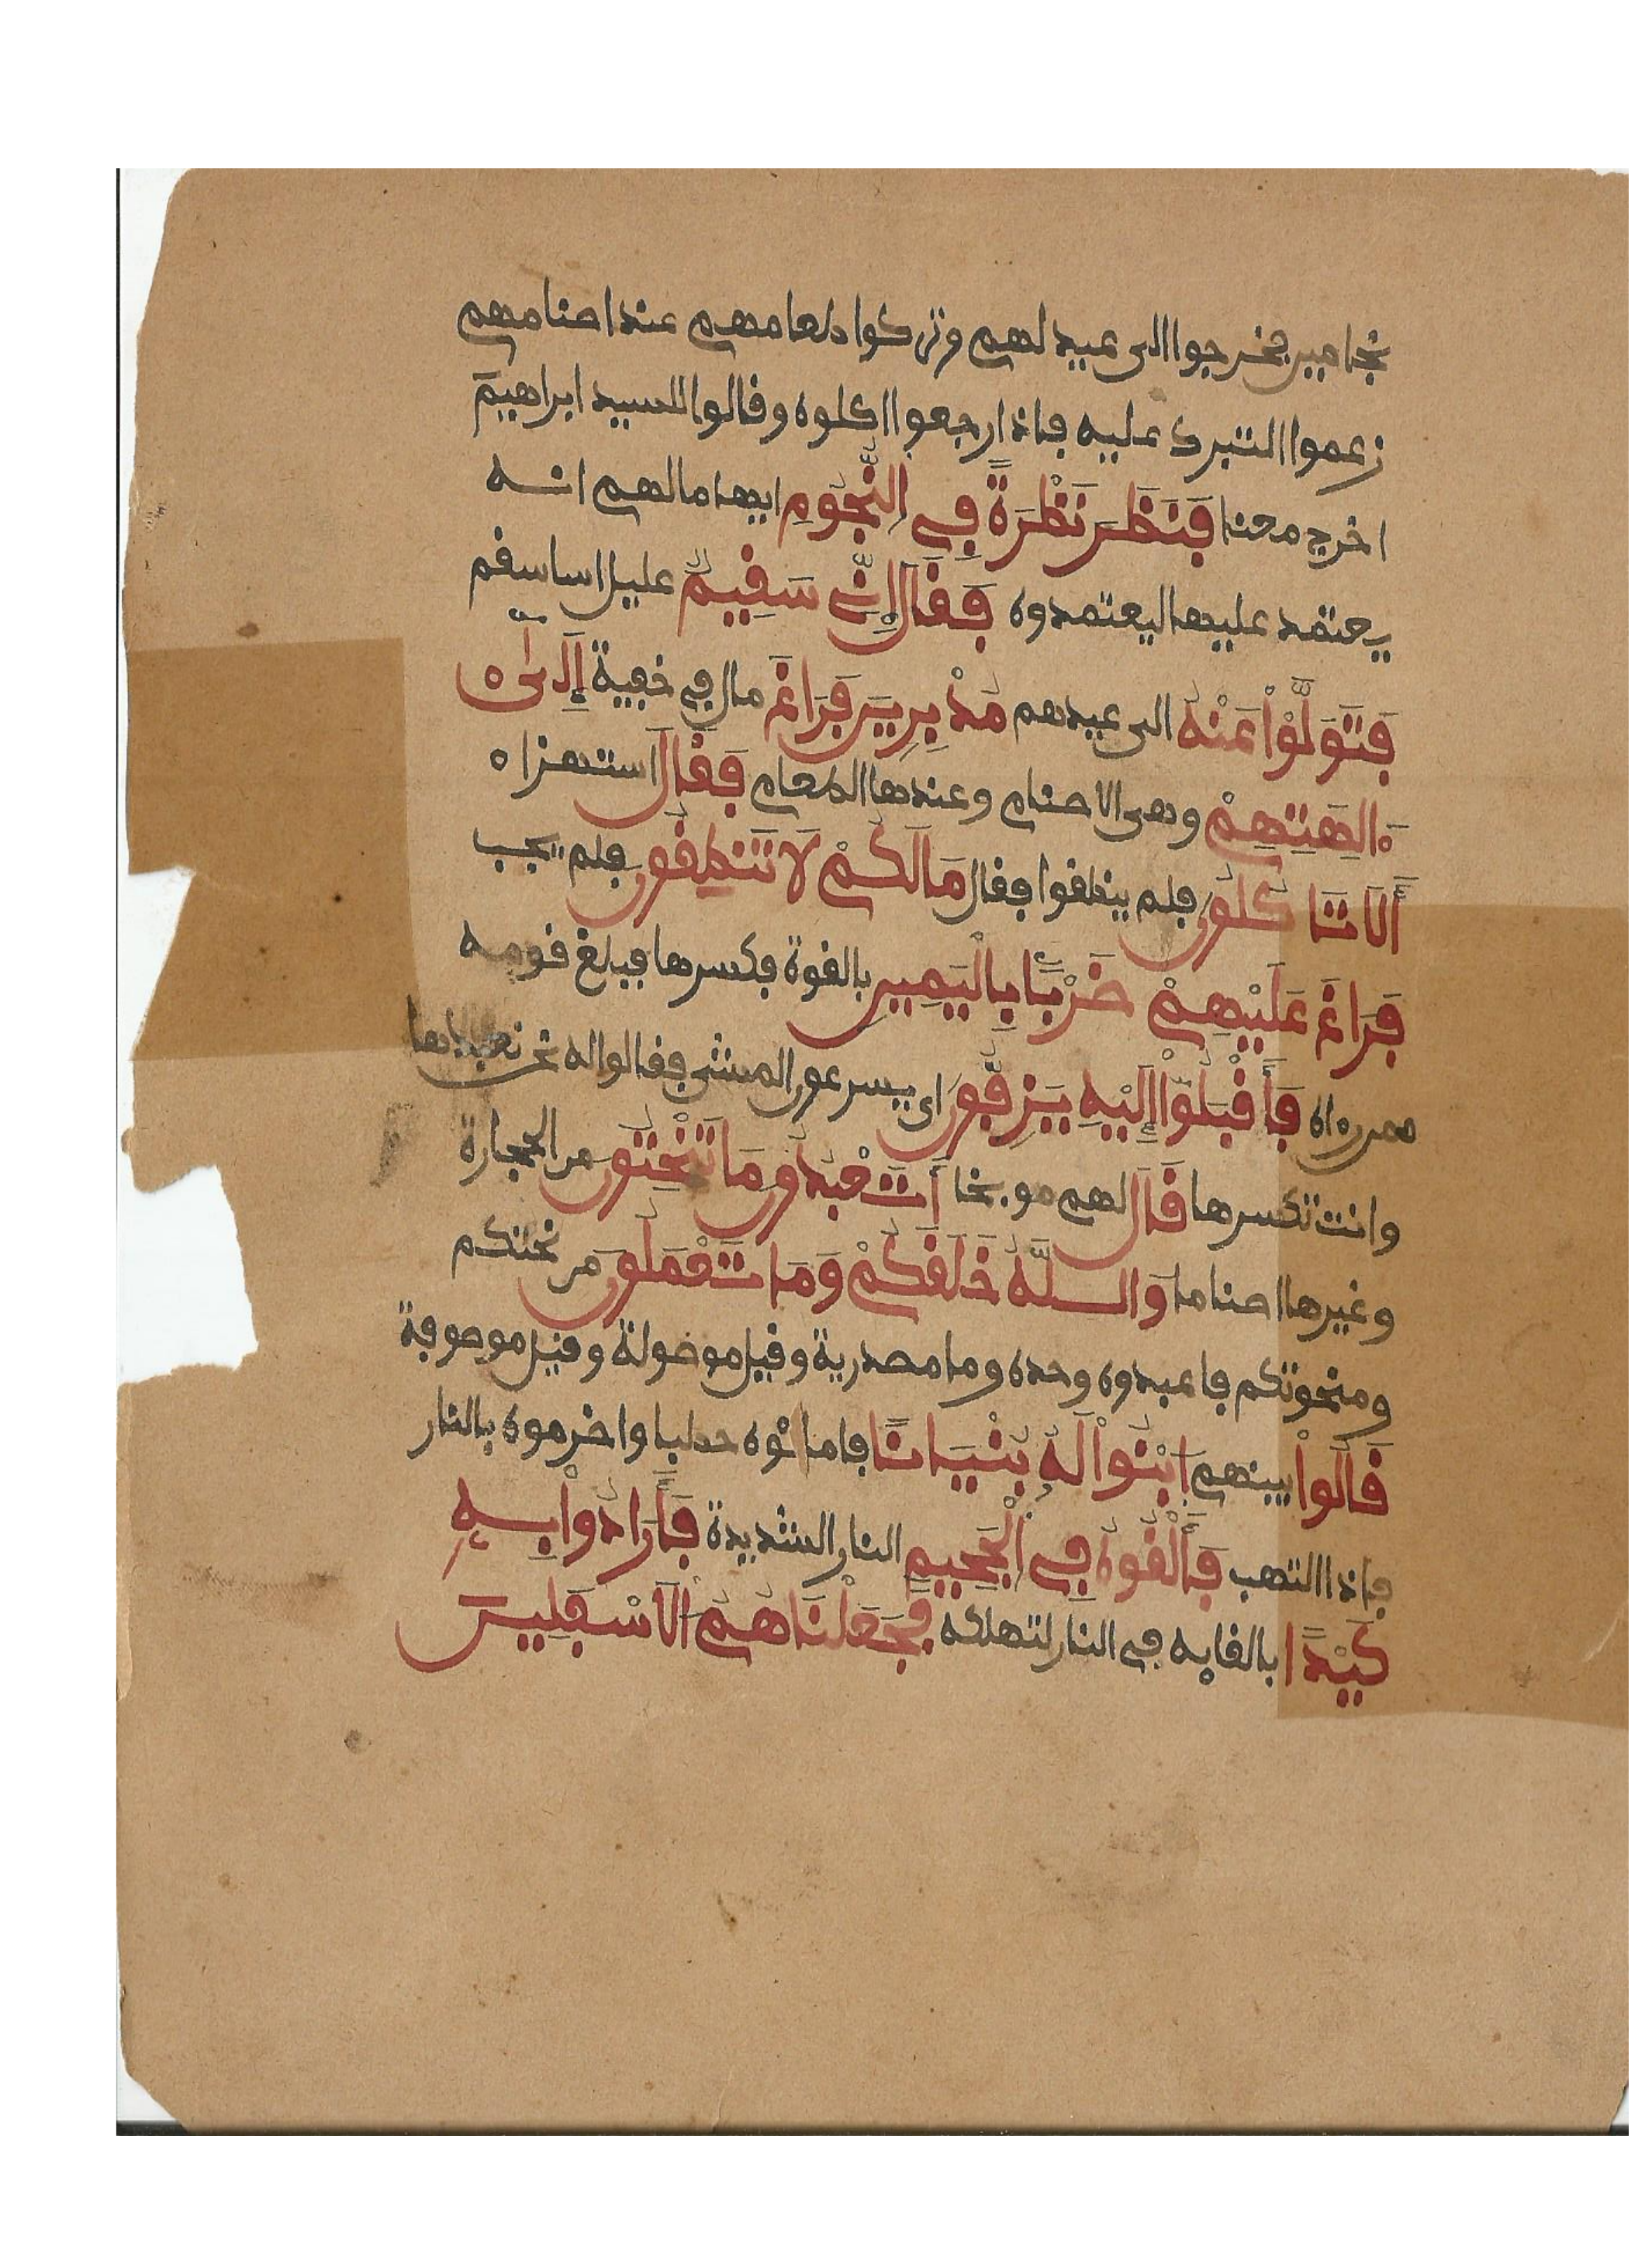 نجامين فخرجوا الى عيد لهم وتركوا طعامهم عند اصنامهم
زعموا التبرك عليه فاذا رجعوا اكلوه وقالوا للسيد ابراهيم
اخرج معنا فَنَظَرَ نَظْرَةً فِي النُّجُومِ ايهاما لهم انه
يعتمد عليها ليعتمدوه فَقَالَ إِنِّي سَقِيمٌ عليل اساسقم
فَتَوَلَّوْاْ عَنْهُ الى عيدهم مُدْبِرِينَ فَرَاغَ مال في خفية إِلَىٰٓ
ءَالِهَتِهِمْ وهى الاصنام وعندها الطعام فَقَالَ استهزاء
أَلَا تَاكُلُونَ فلم ينطقوا فقال مَا لَكُمْ لَا تَنطِقُونَ فلم يجب
فَرَاغَ عَلَيْهِمْ ضَرْبًا بِالْيَمِينِ بالقوة فكسرها فبلغ قومه
ممن رءاه فَأَقْبَلُوٓاْ إِلَيْهِ يَزِفُّونَ اى يسرعون المشى فقالوا له نحن نعبدها
وانت تكسرها قَالَ لهم موبخا أَتَعْبُدُونَ مَا تَنْحِتُونَ من الحجارة
وغيرها اصناما وَاللَّهُ خَلَقَكُمْ وَمَا تَعْمَلُونَ من نحتكم
ومنحوتكم فاعبدوه وحده وما مصدرية وقيل موصولة وقيل موصوفة
قَالُواْ بينهم ابْنُواْ لَهُ بُنْيَانًا فاملئوه حطبا واضرموه بالنار
فاذا التهب فَأَلْقُوهُ فِي الْجَحِيمِ النار الشديدة فَأَرَادُواْ بِهِ
كَيْدًا بالقايه في النار لتهلكه فَجَعَلْنَاهُمُ الَاسْفَلِينَ